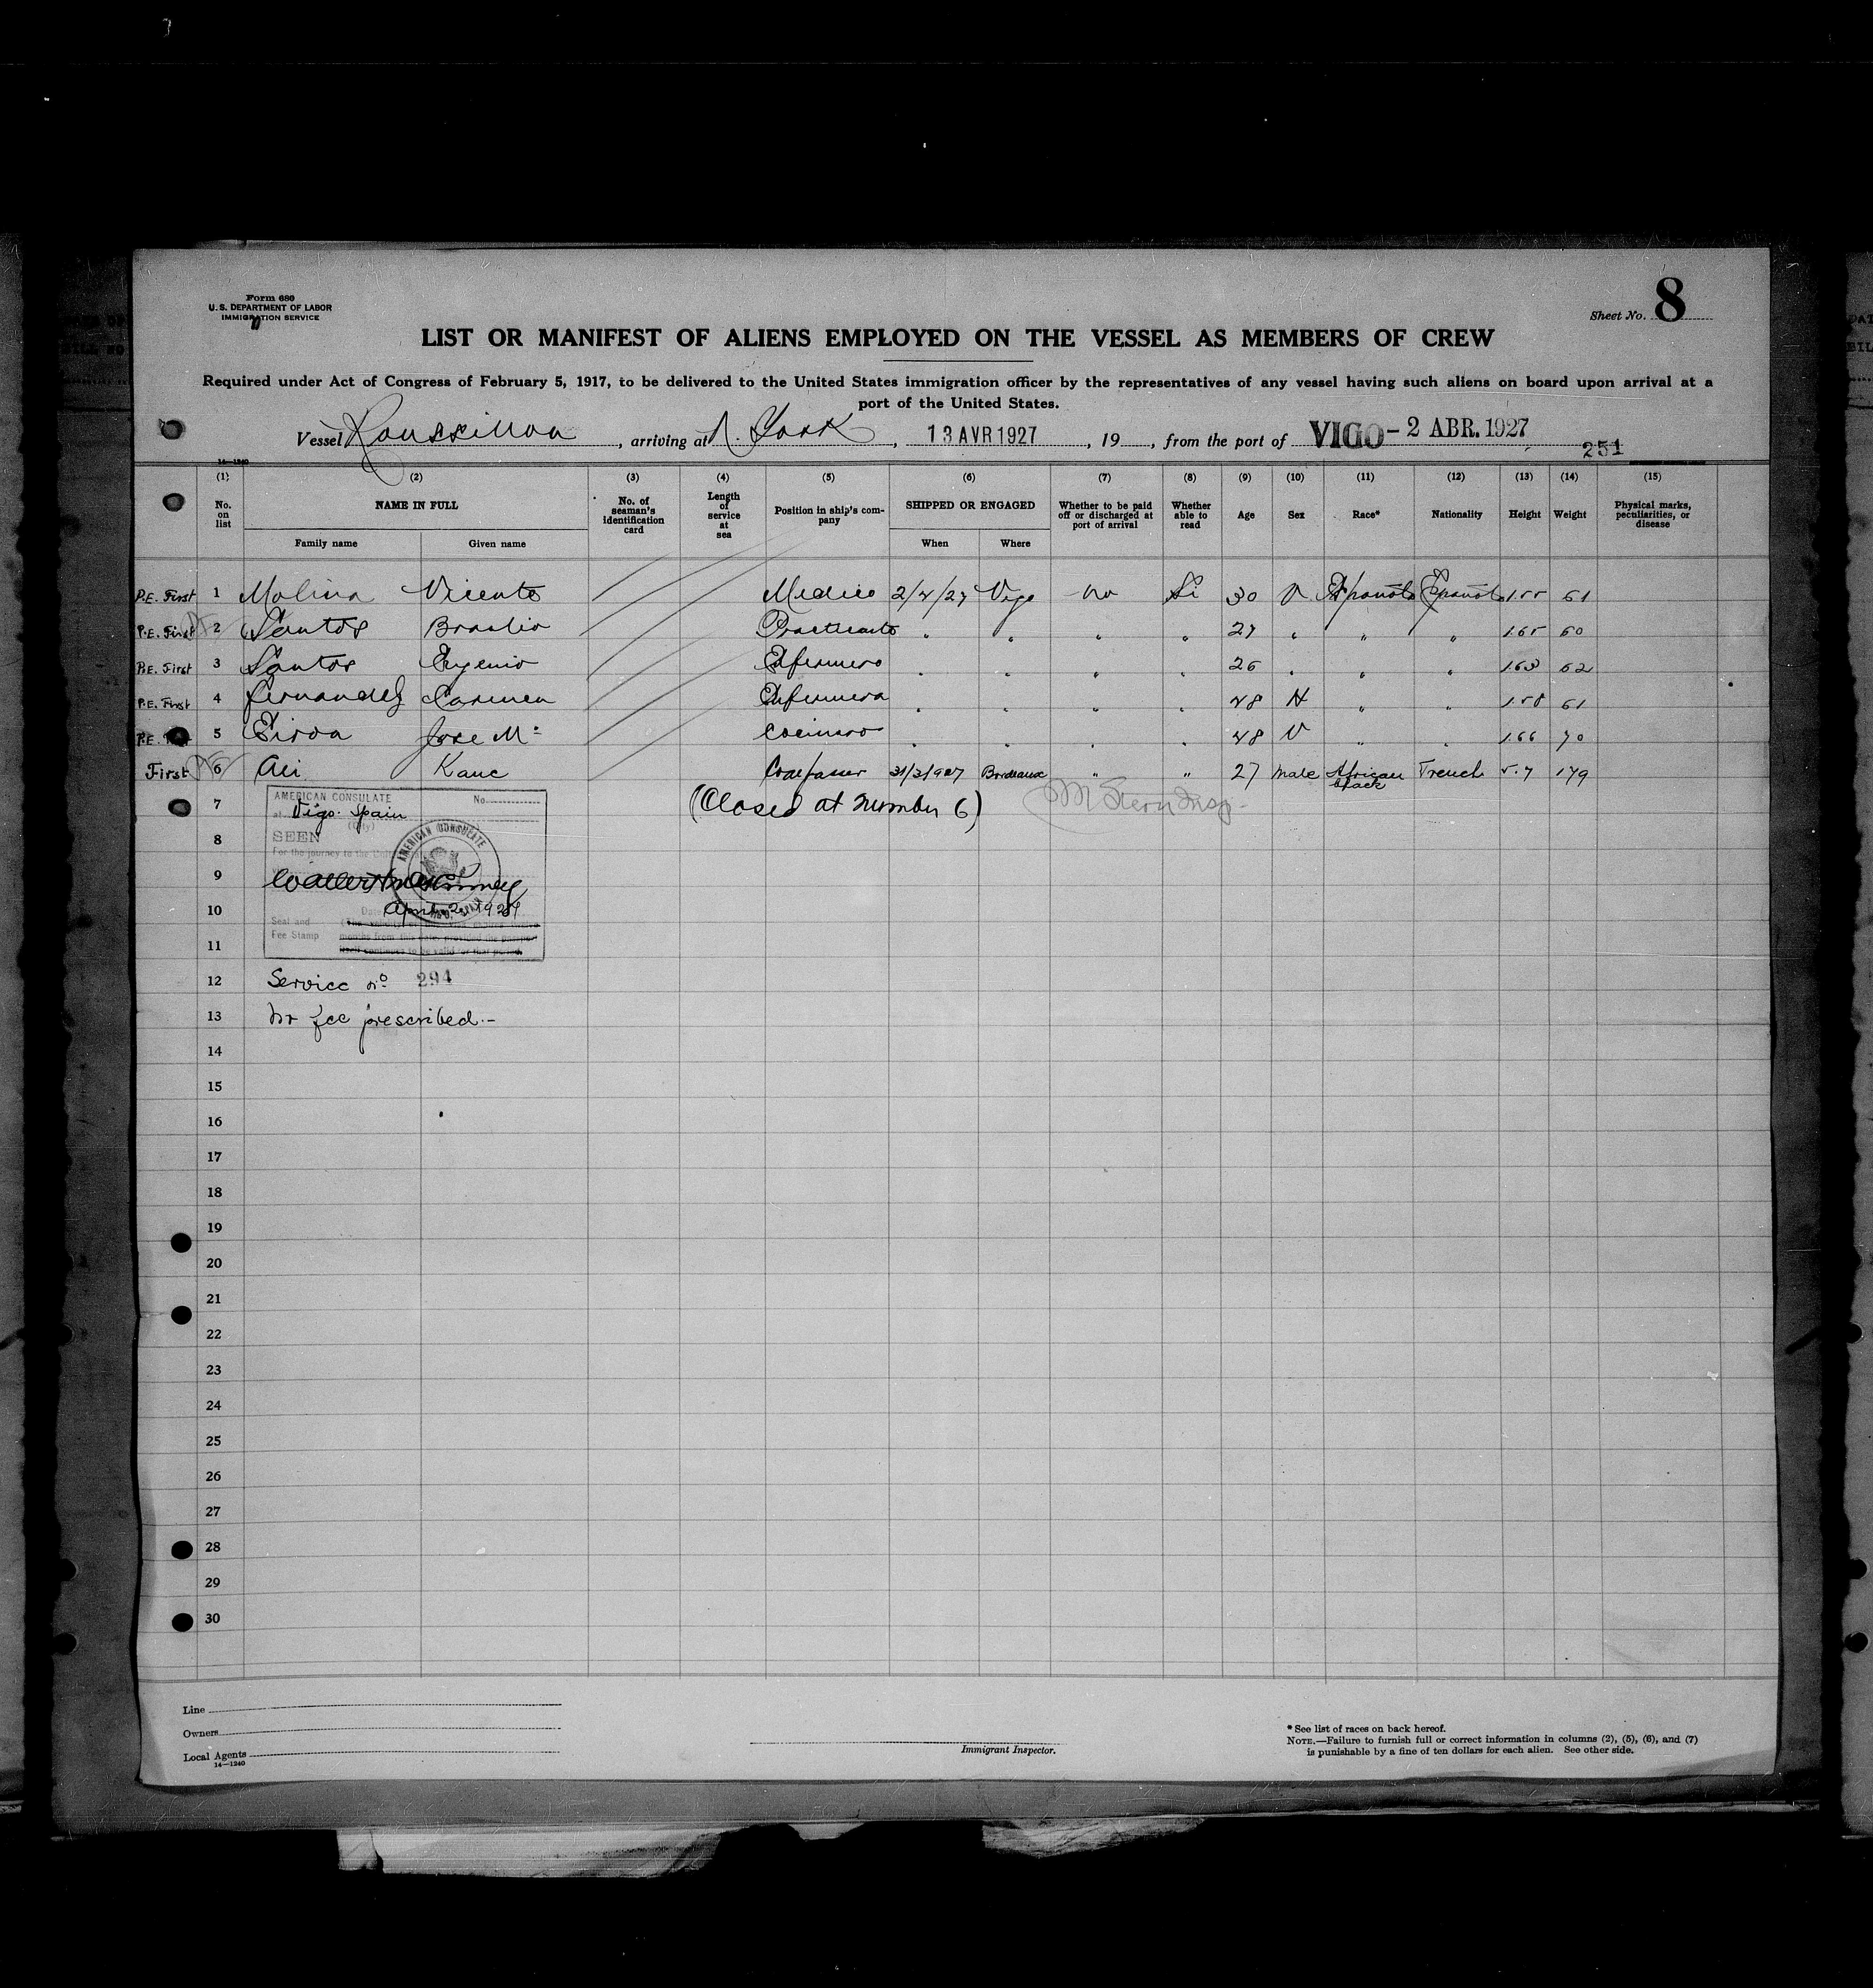 Form 680
U. S. DEPARTMENT OF LABOR
IMMIGRATION SERVICE
Sheet No. 8
LIST OR MANIFEST OF ALIENS EMPLOYED ON THE VESSEL AS MEMBERS OF CREW
Required under Act of Congress of February 5, 1917, to be delivered to the United States immigration officer by the representatives of any vessel having such aliens on board upon arrival at a
port of the United States.
Vessel Roussillon, arriving at N. York, 13 AVR 1927, 19, from the port of VIGO - 2 ABR. 1927
251
14—1240
(1) (2) (3) (4) (5) (6) (7) (8) (9) (10) (11) (12) (13) (14) (15)
No. on list NAME IN FULL No. of seaman's identification card Length of service at sea Position in ship's company SHIPPED OR ENGAGED Whether to be paid off or discharged at port of arrival Whether able to read Age Sex Race* Nationality Height Weight Physical marks, peculiarities, or disease
Family name Given name When Where
P.E. First 1 Molina Vicente Medico 2/4/27 Vigo no Si 30 V Española Española 1.55 61
P.E. First 2 Santos Braulio Practicante " " " " 27 " " " 1.65 60
P.E. First 3 Santos Eugenio Enfermero " " " " 26 " " " 1.63 62
P.E. First 4 Fernandez Carmen Enfermera " " " " 48 H " " 1.58 61
P.E. 5 Jose Mª Cocinero " " " " 48 V " " 1.66 70
First 6 Ali Kane Coalpasser 31/3/927 Bordeaux " " 27 male African black French 5.7 179
7 (Closed at number 6)
AMERICAN CONSULATE No.
at Vigo. Spain
(City)
SEEN
8
For the journey to the
AMERICAN CONSULATE
9
10 April 2, 1927
Seal and
Fee Stamp
months from this date, provided the passport
itself continues to be valid for that period.
11
12 Service nº 294
13 No fee prescribed.-
14
15
16
17
18
19
20
21
22
23
24
25
26
27
28
29
30
Line
Owners
Local Agents
14—1240
Immigrant Inspector.
* See list of races on back hereof.
NOTE.—Failure to furnish full or correct information in columns (2), (5), (6), and (7)
is punishable by a fine of ten dollars for each alien. See other side.